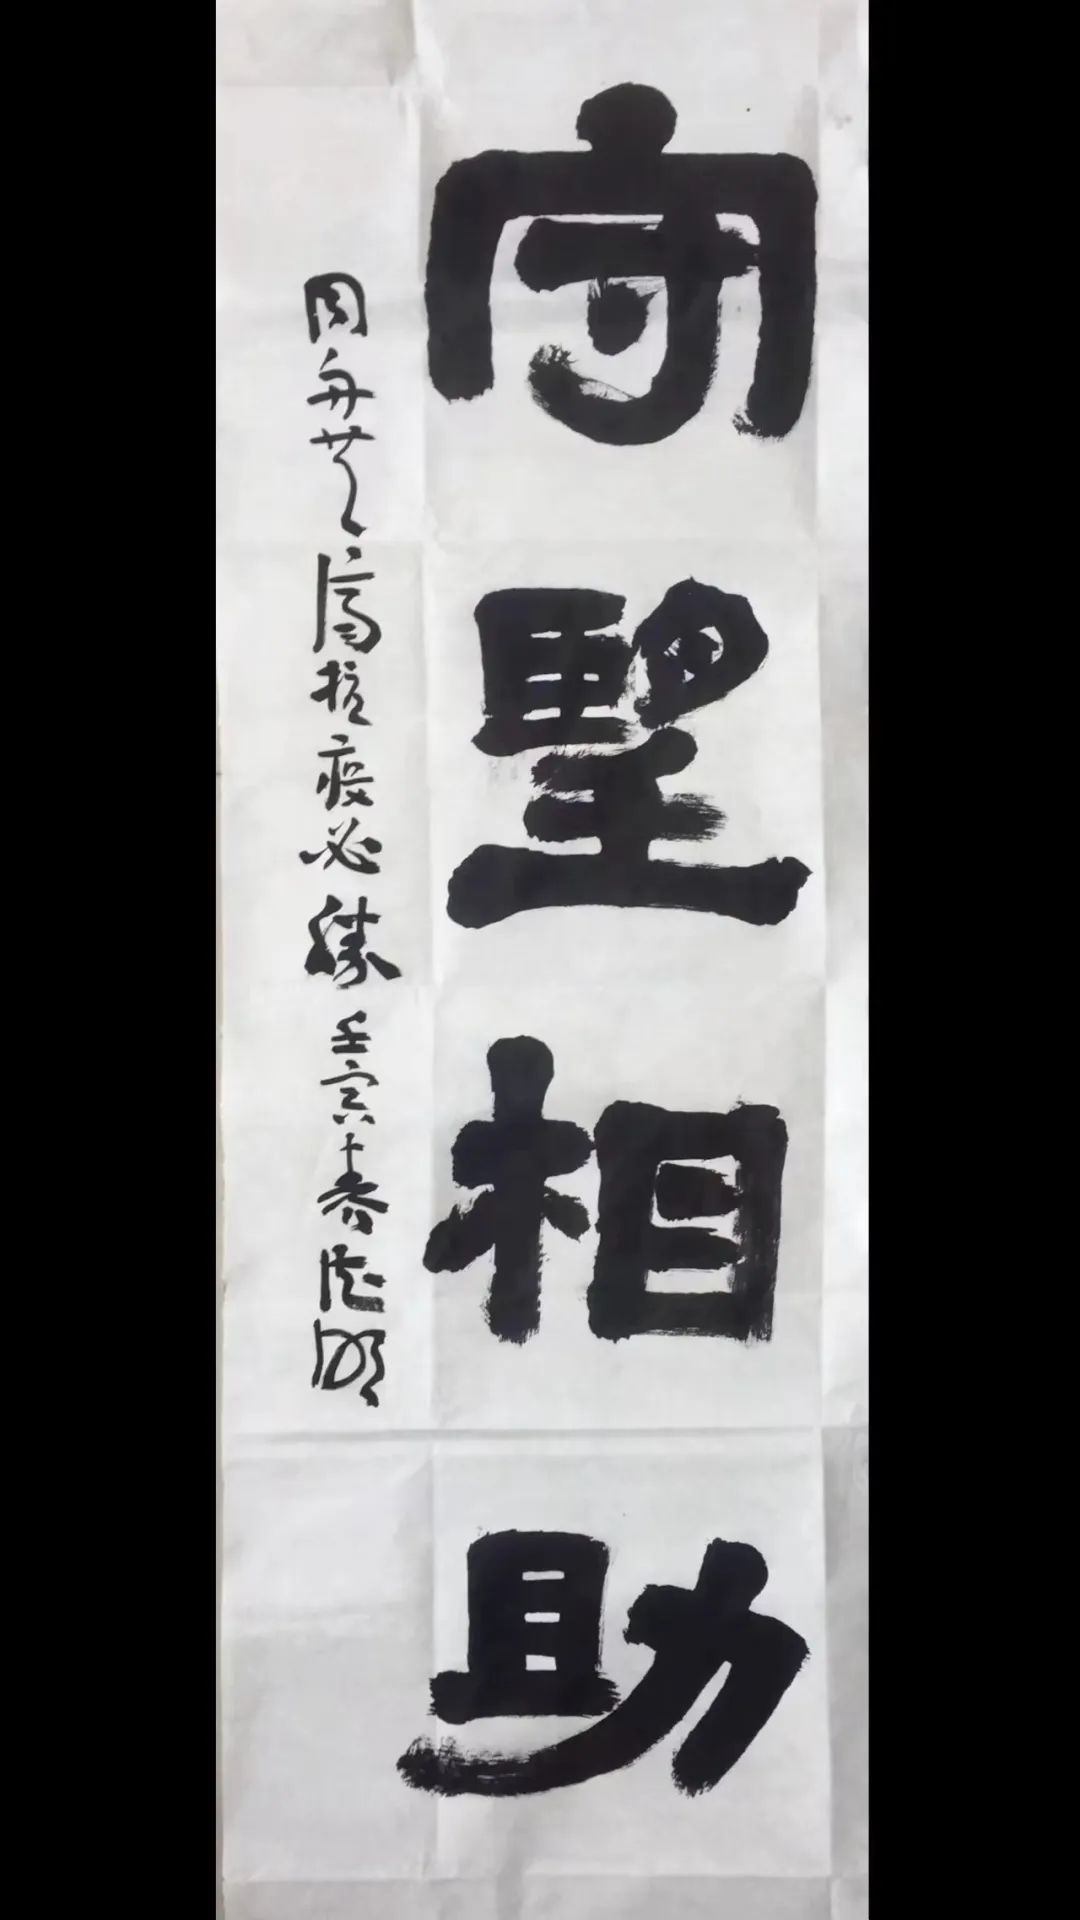 守望相助
同舟共濟抗疫必勝 壬寅春